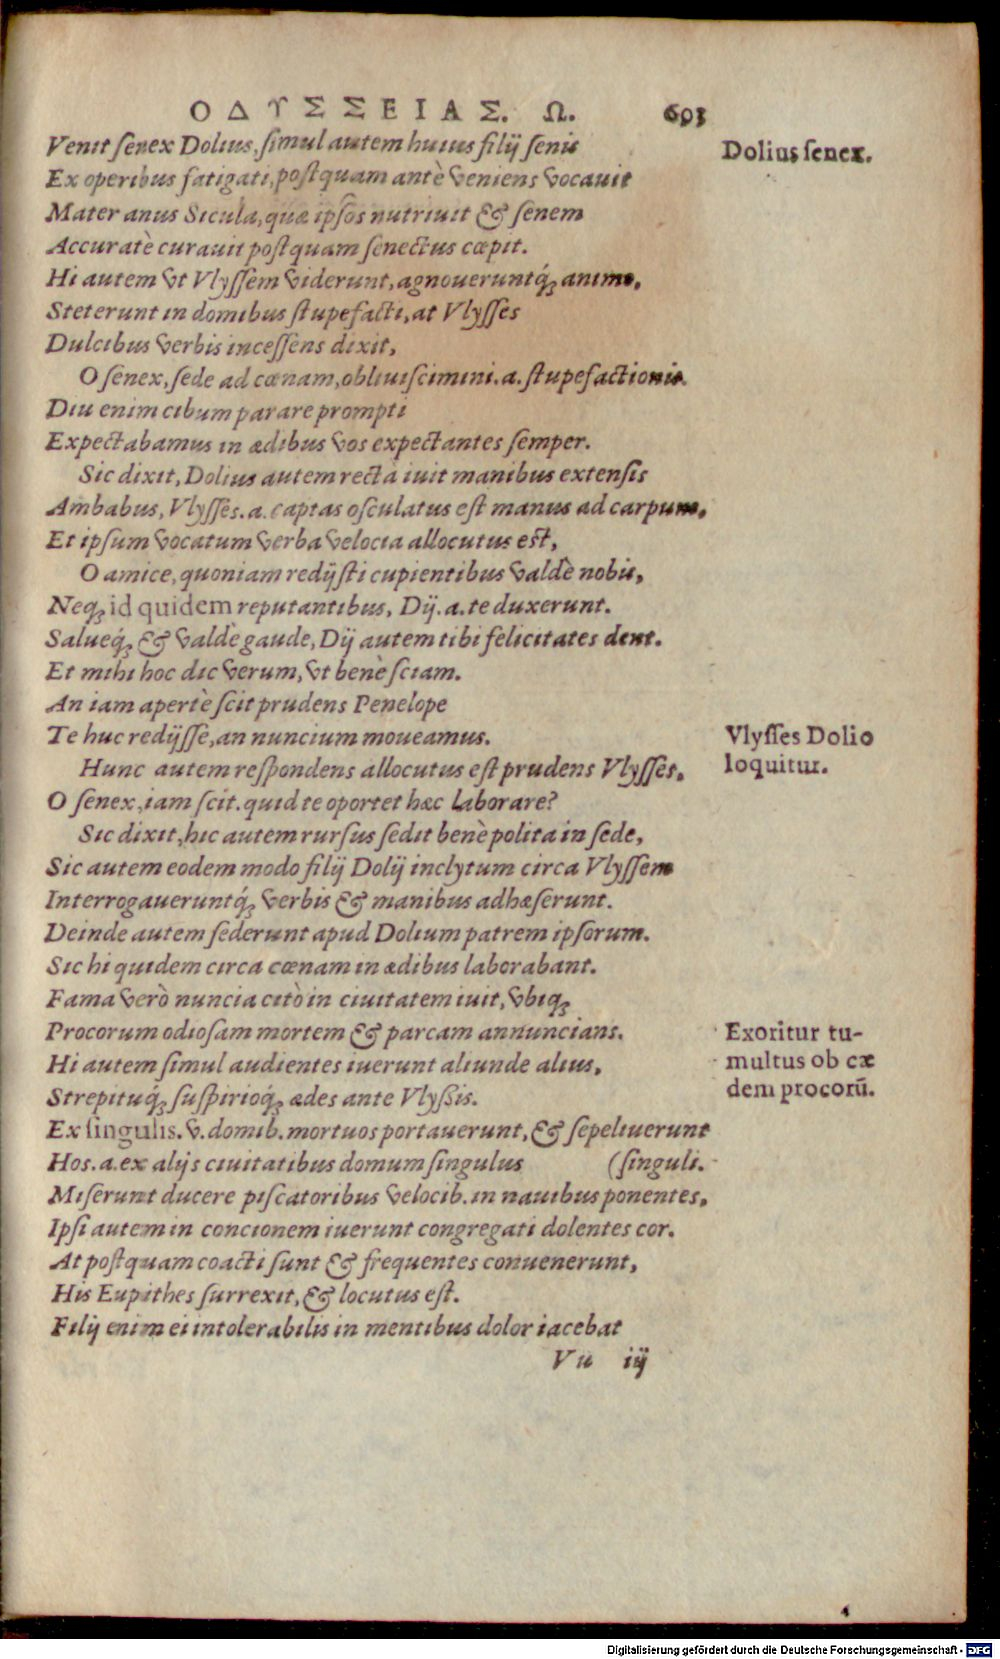 ΟΔΥΣΣΕΙΑΣ. Ω. 693
Venit ſenex Dolius, ſimul autem huius filij ſenis
Dolius ſenex.
Ex operibus fatigati, poſtquam antè veniens vocauit
Mater anus Sicula, quæ ipſos nutriuit & ſenem
Accuratè curauit poſtquam ſenectus cœpit.
Hi autem vt Vlyſſem viderunt, agnoueruntq́; animo,
Steterunt in domibus ſtupefacti, at Vlyſſes
Dulcibus verbis inceſſens dixit,
O ſenex, ſede ad cœnam, obliuiſcimini. a. ſtupefactionis.
Diu enim cibum parare prompti
Expectabamus in ædibus vos expectantes ſemper.
Sic dixit, Dolius autem rectà iuit manibus extenſis
Ambabus, Vlyſſes. a. captas oſculatus eſt manus ad carpum,
Et ipſum vocatum verba velocia allocutus eſt,
O amice, quoniam redijſti cupientibus valdè nobis,
Neq; id quidem reputantibus, Dij. a. te duxerunt.
Salueq́; & valdè gaude, Dij autem tibi felicitates dent.
Et mihi hoc dic verum, vt benè ſciam.
An iam apertè ſcit prudens Penelope
Te huc redijſſe, an nuncium moueamus.
Vlyſſes Dolio
loquitur.
Hunc autem reſpondens allocutus eſt prudens Vlyſſes,
O ſenex, iam ſcit. quid te oportet hæc laborare?
Sic dixit, hic autem rurſus ſedit benè polita in ſede,
Sic autem eodem modo filij Dolij inclytum circa Vlyſſem
Interrogaueruntq́; verbis & manibus adhæſerunt.
Deinde autem ſederunt apud Dolium patrem ipſorum.
Sic hi quidem circa cœnam in ædibus laborabant.
Fama verò nuncia citò in ciuitatem iuit, vbiq;
Procorum odioſam mortem & parcam annuncians.
Exoritur tu-
multus ob cæ
dem procorū.
Hi autem ſimul audientes iuerunt aliunde alius,
Strepituq́; ſuſpirioq́; ædes ante Vlyßis.
Ex ſingulis. v. domib. mortuos portauerunt, & ſepeliuerunt
Hos. a. ex alijs ciuitatibus domum ſingulus (ſinguli.
Miſerunt ducere piſcatoribus velocib. in nauibus ponentes,
Ipſi autem in concionem iuerunt congregati dolentes cor.
At poſtquam coacti ſunt & frequentes conuenerunt,
His Eupithes ſurrexit, & locutus eſt.
Filij enim ei intolerabilis in mentibus dolor iacebat
Vu iij
Digitalisierung gefördert durch die Deutsche Forschungsgemeinschaft - DFG